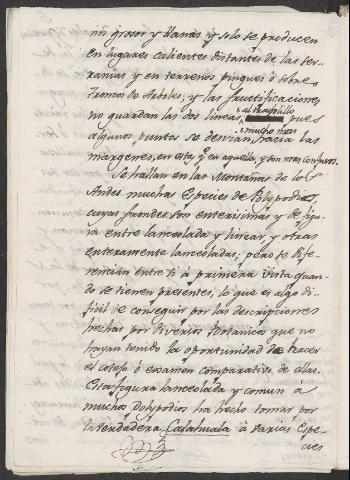 nos grosor y llanas y solo se producen
en lugares calientes distantes de las ser-
ranias y en terrenos pingues ò sobre
Troncos de Arboles; y las fructificaciones
no guardan las dos lineas pues
algunos puntos se desvian hacia las
margenes, en esta q.e en aquella, y son mas confusos.
Se hallan en las Montañas de los
Andes muchas Especies de Polypodios
cuyas frondes son enterisimas y de figu
ra entre lanceolada y linear, y otras
enteramente lanceoladas; pero se dife
rencian entre si à primera vista quan-
do se tienen presentes, lo que es algo di-
ficil de conseguir por las descripciones
hechas por diversos Botanicos que no
hayan tenido la oportunidad de hacer
el cotejo ò examen comparativo de ellas.
Esta figura lanceolada y comun à
muchos Polypodios ha hecho tomar por
la verdadera Calahuala à varias Espe-
cies